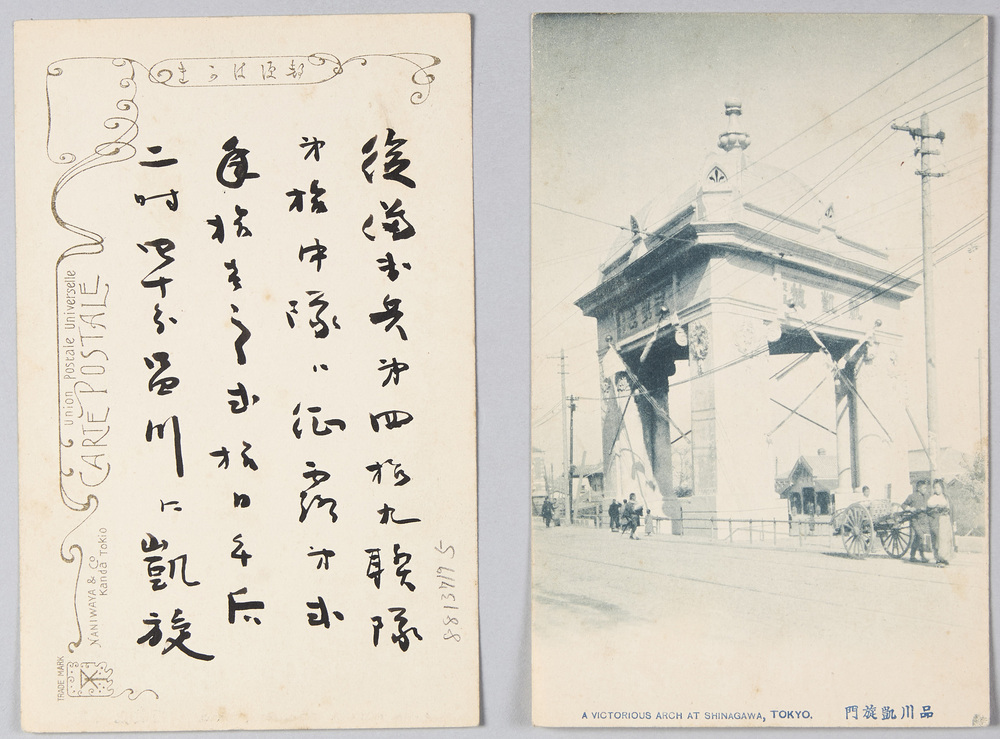 郵便はかき
後備歩兵第四拾九聯隊
第拾中隊ハ征露第弐
年拾壱月弐拾日午后
二时四十分品川に凱旋
Union Postale Universelle
CARTE POSTALE
NANIWAYA & Co
Kanda TOKIO
TRADE MARK
8813719 5
A VICTORIOUS ARCH AT SHINAGAWA, TOKYO.
品川凱旋門